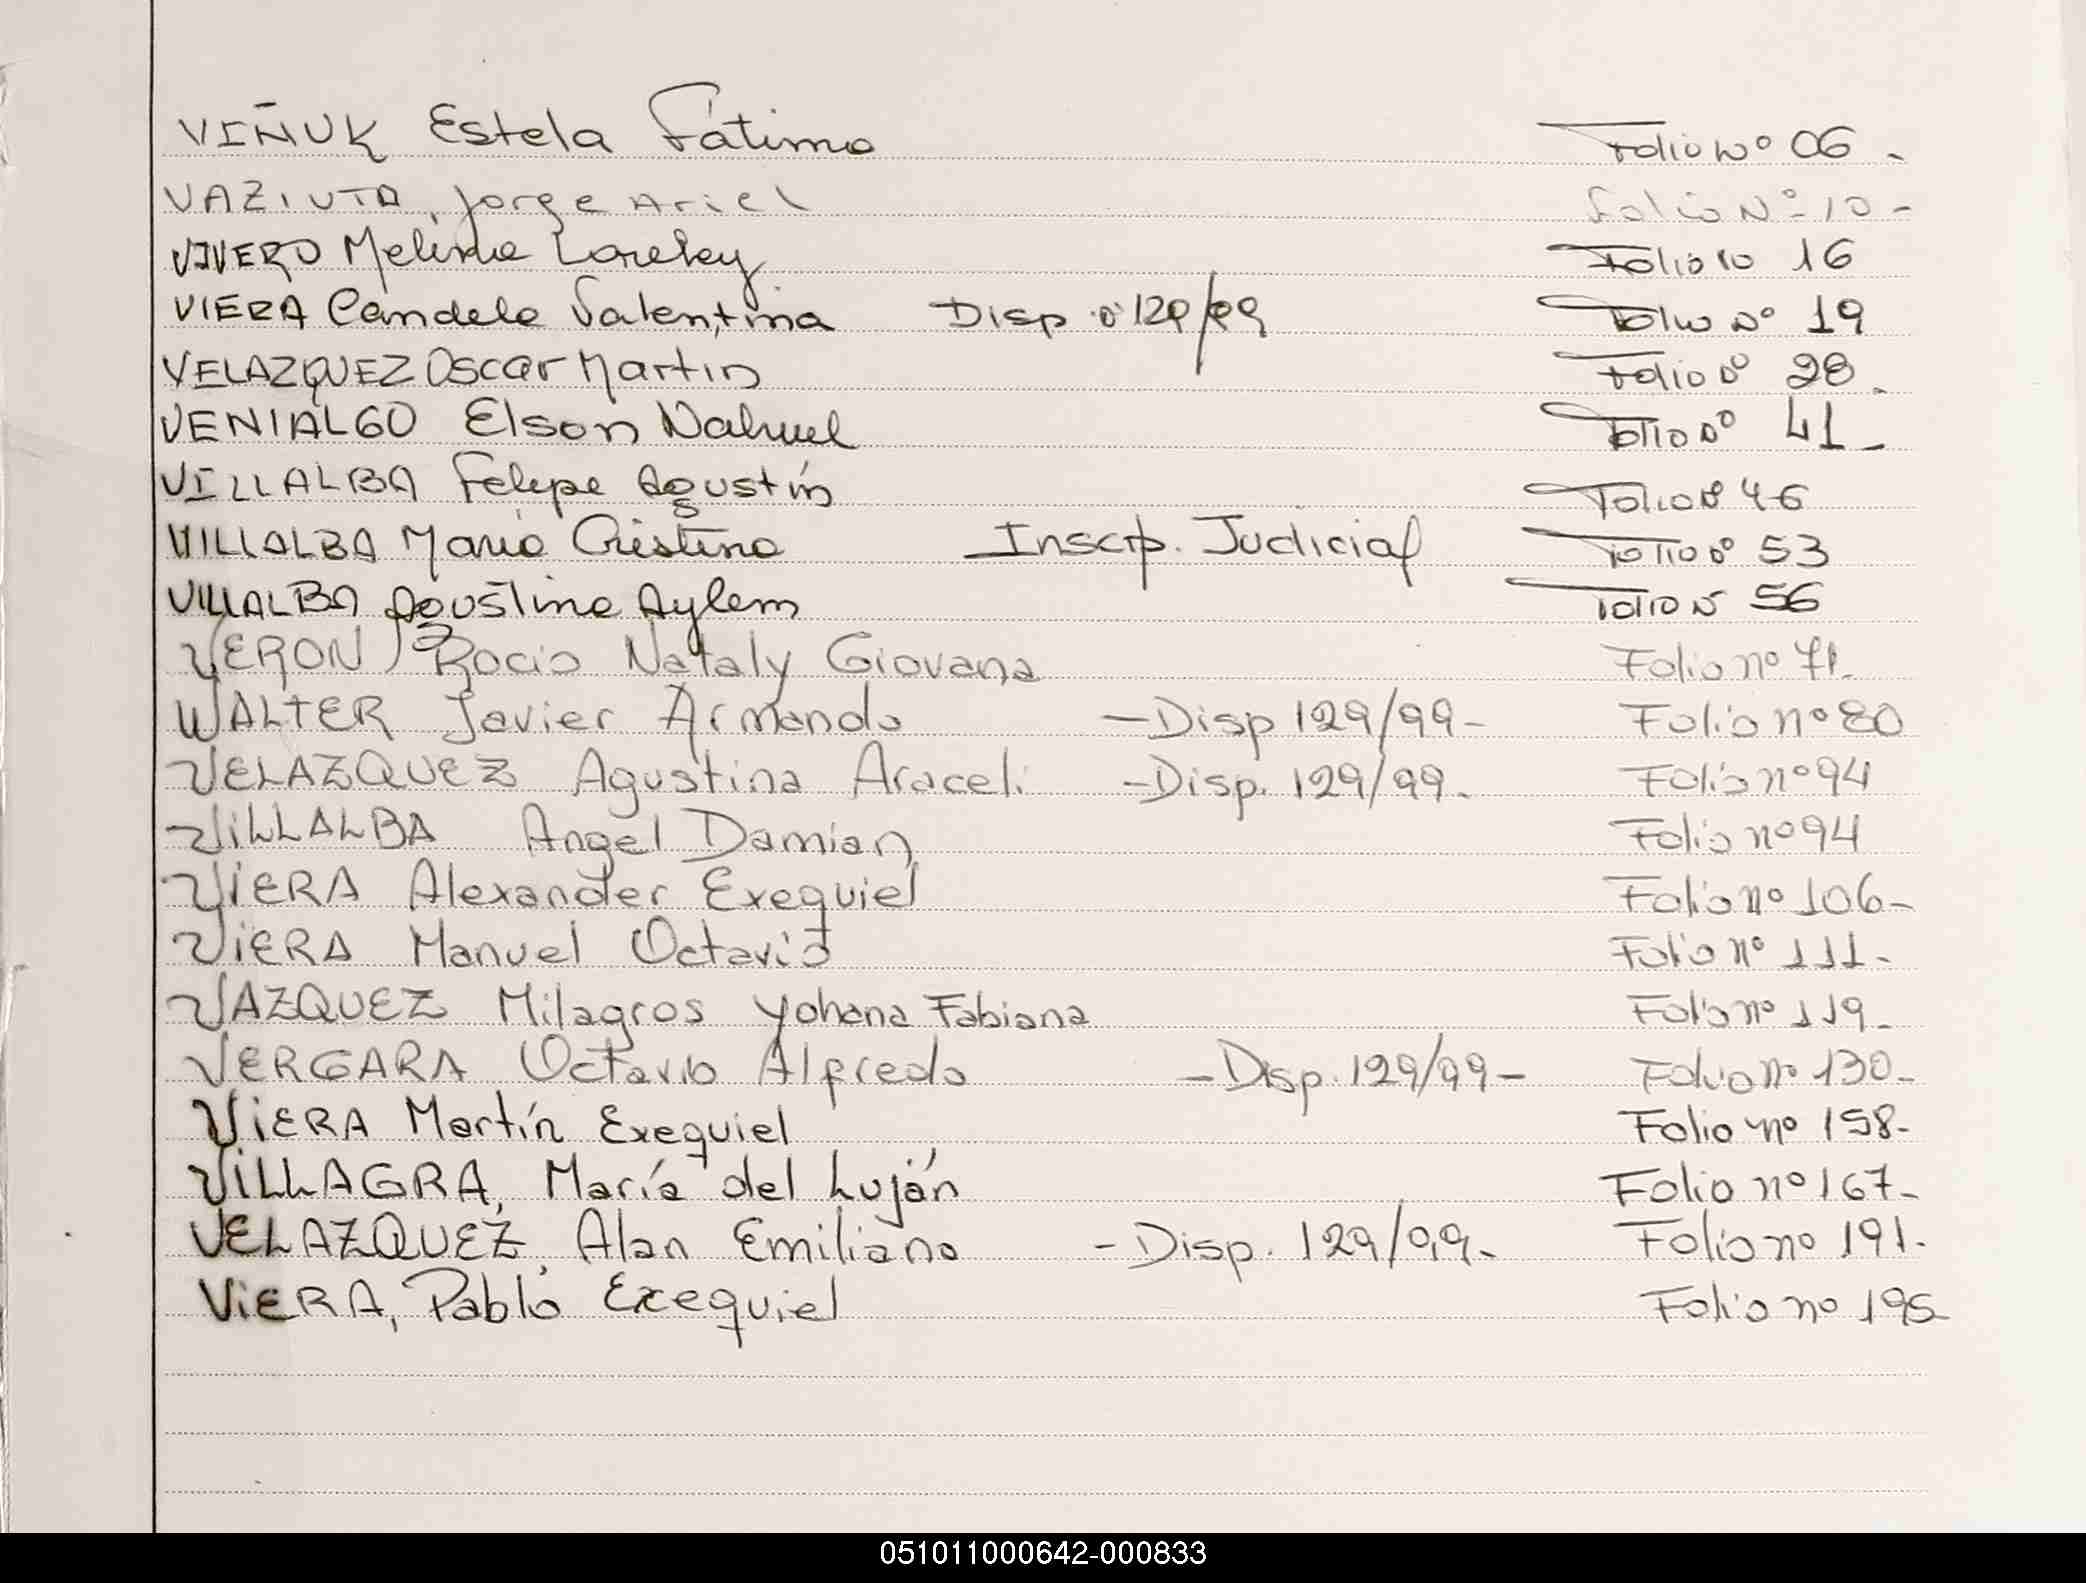 VIÑUK Estela Fátima Folio Nº 06.
VAZIUTA, Jorge Ariel Folio Nº 10-
VIVERO Melina Loreley Folio Nº 16
VIERA Candela Valentina Disp. nº 129/99 Folio Nº 19
VELAZQUEZ Oscar Martin Folio Nº 28.
VENIALGO Elson Nahuel Folio Nº 41-
VILLALBA Felipe Agustín Folio Nº 46
VILLALBA María Cristina - Inscrip. Judicial Folio Nº 53
VILLALBA Agustina Aylem Folio Nº 56
VERON, Rocio Nataly Giovana Folio nº 71.
WALTER Javier Armando - Disp 129/99- Folio nº 80
VELAZQUEZ Agustina Araceli -Disp. 129/99. Folio nº 94
VILLALBA Angel Damian Folio nº 94
VIERA Alexander Exequiel Folio nº 106-
VIERA Manuel Octavio Folio nº 111.
VAZQUEZ Milagros Yohana Fabiana Folio nº 119.
VERGARA Octavio Alfredo - Disp. 129/99 - Folio nº 130.
VIERA Martín Exequiel Folio nº 158-
VILLAGRA, María del Luján Folio nº 167-
VELAZQUEZ, Alan Emiliano - Disp. 129/99. Folio nº 191.
VIERA, Pablo Exequiel Folio nº 195-
051011000642-000833